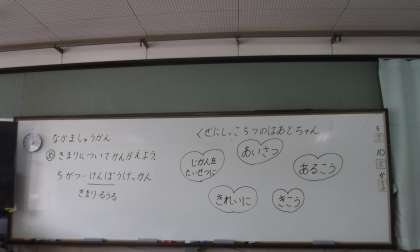 なかましゅうかん
め きまりについてかんがえよう。
5がつ…けんぽうげっかん
きまり・るうる
くせにしよっこう5つのはあとちゃん
じかんを
たいせつに
あいさつ
あるこう
きれいに
きこう